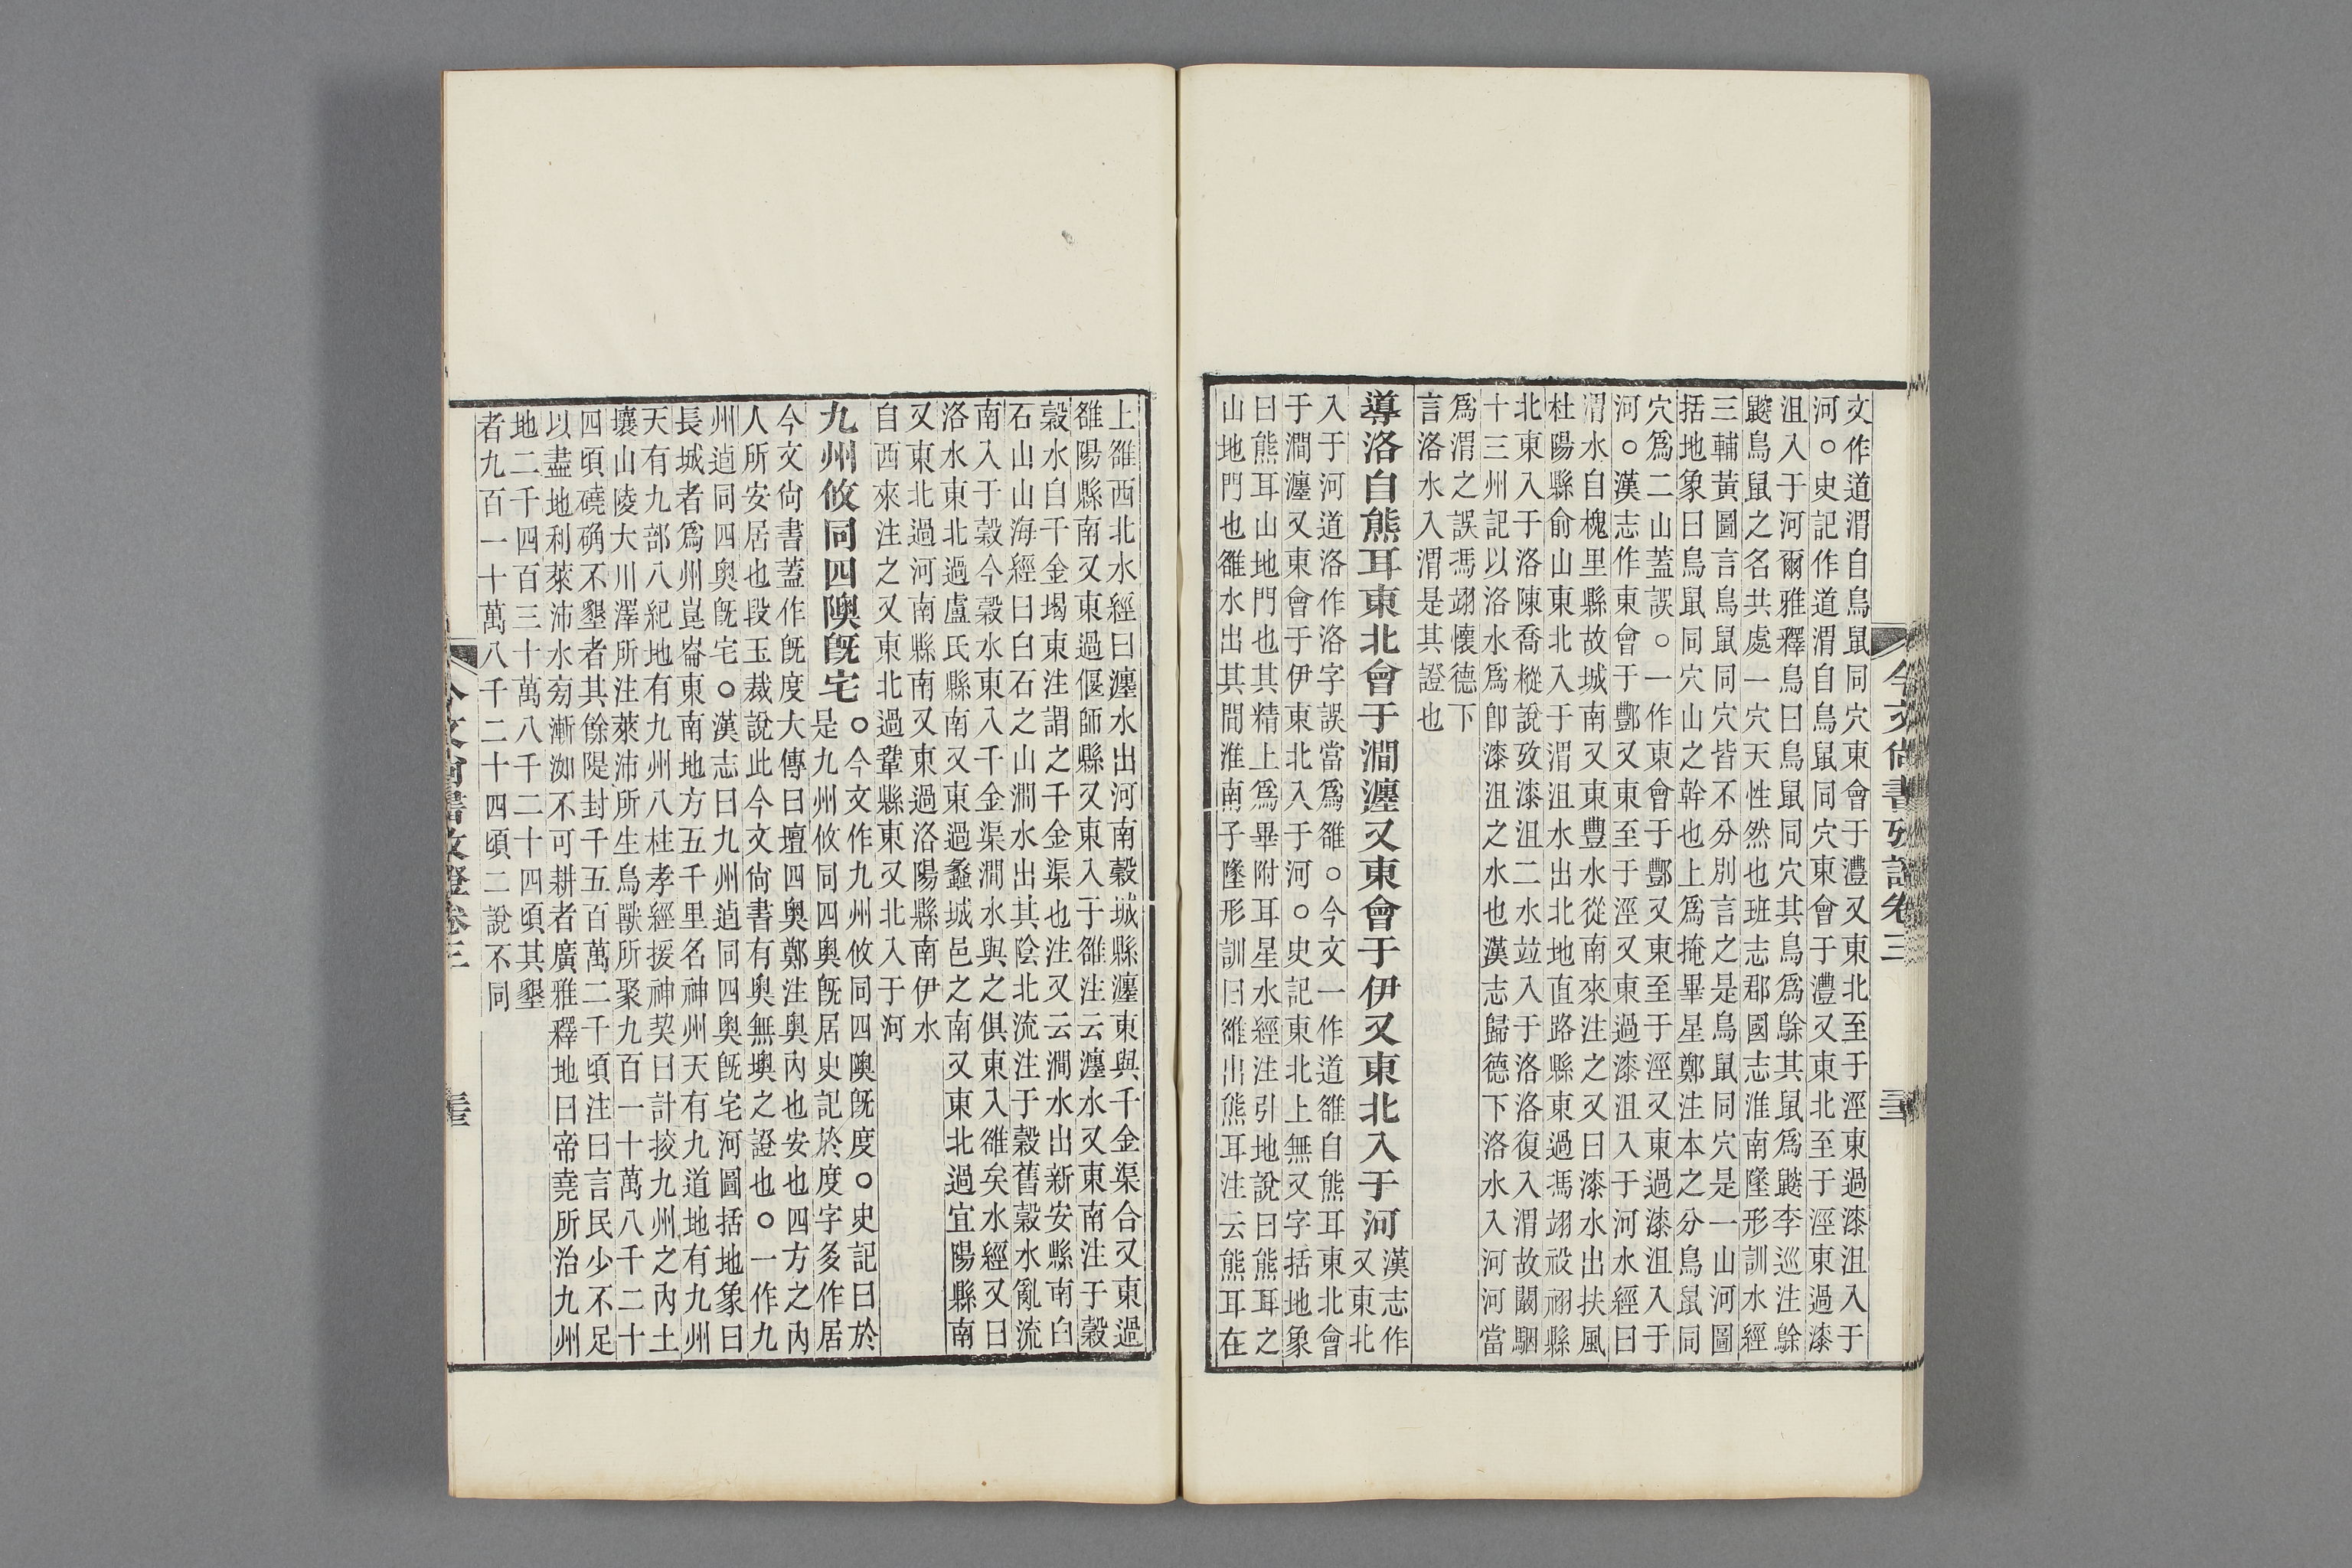 文作道渭自鳥鼠同穴東會于灃又東北至于涇東過漆沮入于
河○史記作道渭自鳥鼠同穴東會于灃又東北至于涇東過漆
沮入于河爾雅釋鳥曰鳥鼠同穴其鳥爲鵌其鼠爲鼵李巡注鵌
鼵鳥鼠之名共處一穴天性然也班志郡國志淮南墬形訓水經
三輔黃圖言鳥鼠同穴皆不分別言之是鳥鼠同穴是一山河圖
括地象曰鳥鼠同穴山之幹也上爲掩畢星鄭注本之分鳥鼠同
穴爲二山蓋誤○一作東會于酆又東至于涇又東過漆沮入于
河○漢志作東會于酆又東至于涇又東過漆沮入于河水經曰
渭水自槐里縣故城南又東豐水從南來注之又曰漆水出扶風
杜陽縣俞山東北入于渭沮水出北地直路縣東過馮翊祋祤縣
北東入于洛陳喬樅說攷漆沮二水竝入于洛洛復入渭故闞駰
十三州記以洛水爲卽漆沮之水也漢志歸德下洛水入河河當
爲渭之誤馮翊懷德下
言洛水入渭是其證也
導洛自熊耳東北會于澗瀍又東會于伊又東北入于河
漢志作
又東北
入于河道洛作洛字誤當爲雒○今文一作道雒自熊耳東北會
于澗瀍又東會于伊東北入于河○史記東北上無又字括地象
曰熊耳山地門也其精上爲畢附耳星水經注引地說曰熊耳之
山地門也雒水出其間淮南子墬形訓曰雒出熊耳注云熊耳在
今文尚書攷證卷三
三三
上雒西北水經曰瀍水出河南穀城縣瀍東與千金渠合又東過
雒陽縣南又東過偃師縣又東入于雒注云瀍水又東南注于穀
穀水自千金堨東注謂之千金渠也注又云澗水出新安縣南白
石山山海經曰白石之山澗水出其陰北流注于穀舊穀水亂流
南入于穀今穀水東入千金渠澗水與之俱東入雒矣水經又曰
洛水東北過盧氏縣南又東過蠡城邑之南又東北過宜陽縣南
又東北過河南縣南又東過洛陽縣南伊水
自西來注之又東北過鞏縣東又北入于河
九州攸同四隩旣宅
○今文作九州攸同四隩旣度○史記曰於
是九州攸同四奧旣居史記於度字多作居
今文尙書蓋作旣度大傳曰壇四奧鄭注奧內也安也四方之內
人所安居也段玉裁說此今文尙書有奧無墺之證也○一作九
州逌同四奧旣宅○漢志曰九州逌同四奧旣宅河圖括地象曰
長城者爲州崑崙東南地方五千里名神州天有九道地有九州
天有九部八紀地有九州八柱孝經援神契曰計挍九州之內土
壤山陵大川澤所注萊沛所生鳥獸所聚九百一十萬八千二十
四頃磽确不墾者其餘隄封千五百萬二千頃注曰言民少不足
以盡地利萊沛水㓞漸洳不可耕者廣雅釋地曰帝堯所治九州
地二千四百三十萬八千二十四頃其墾
者九百一十萬八千二十四頃二說不同
今文尚書攷證卷三